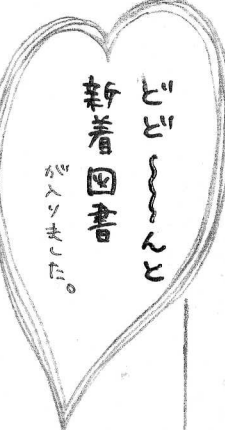 どど〜〜んと
新着図書
が入りました。